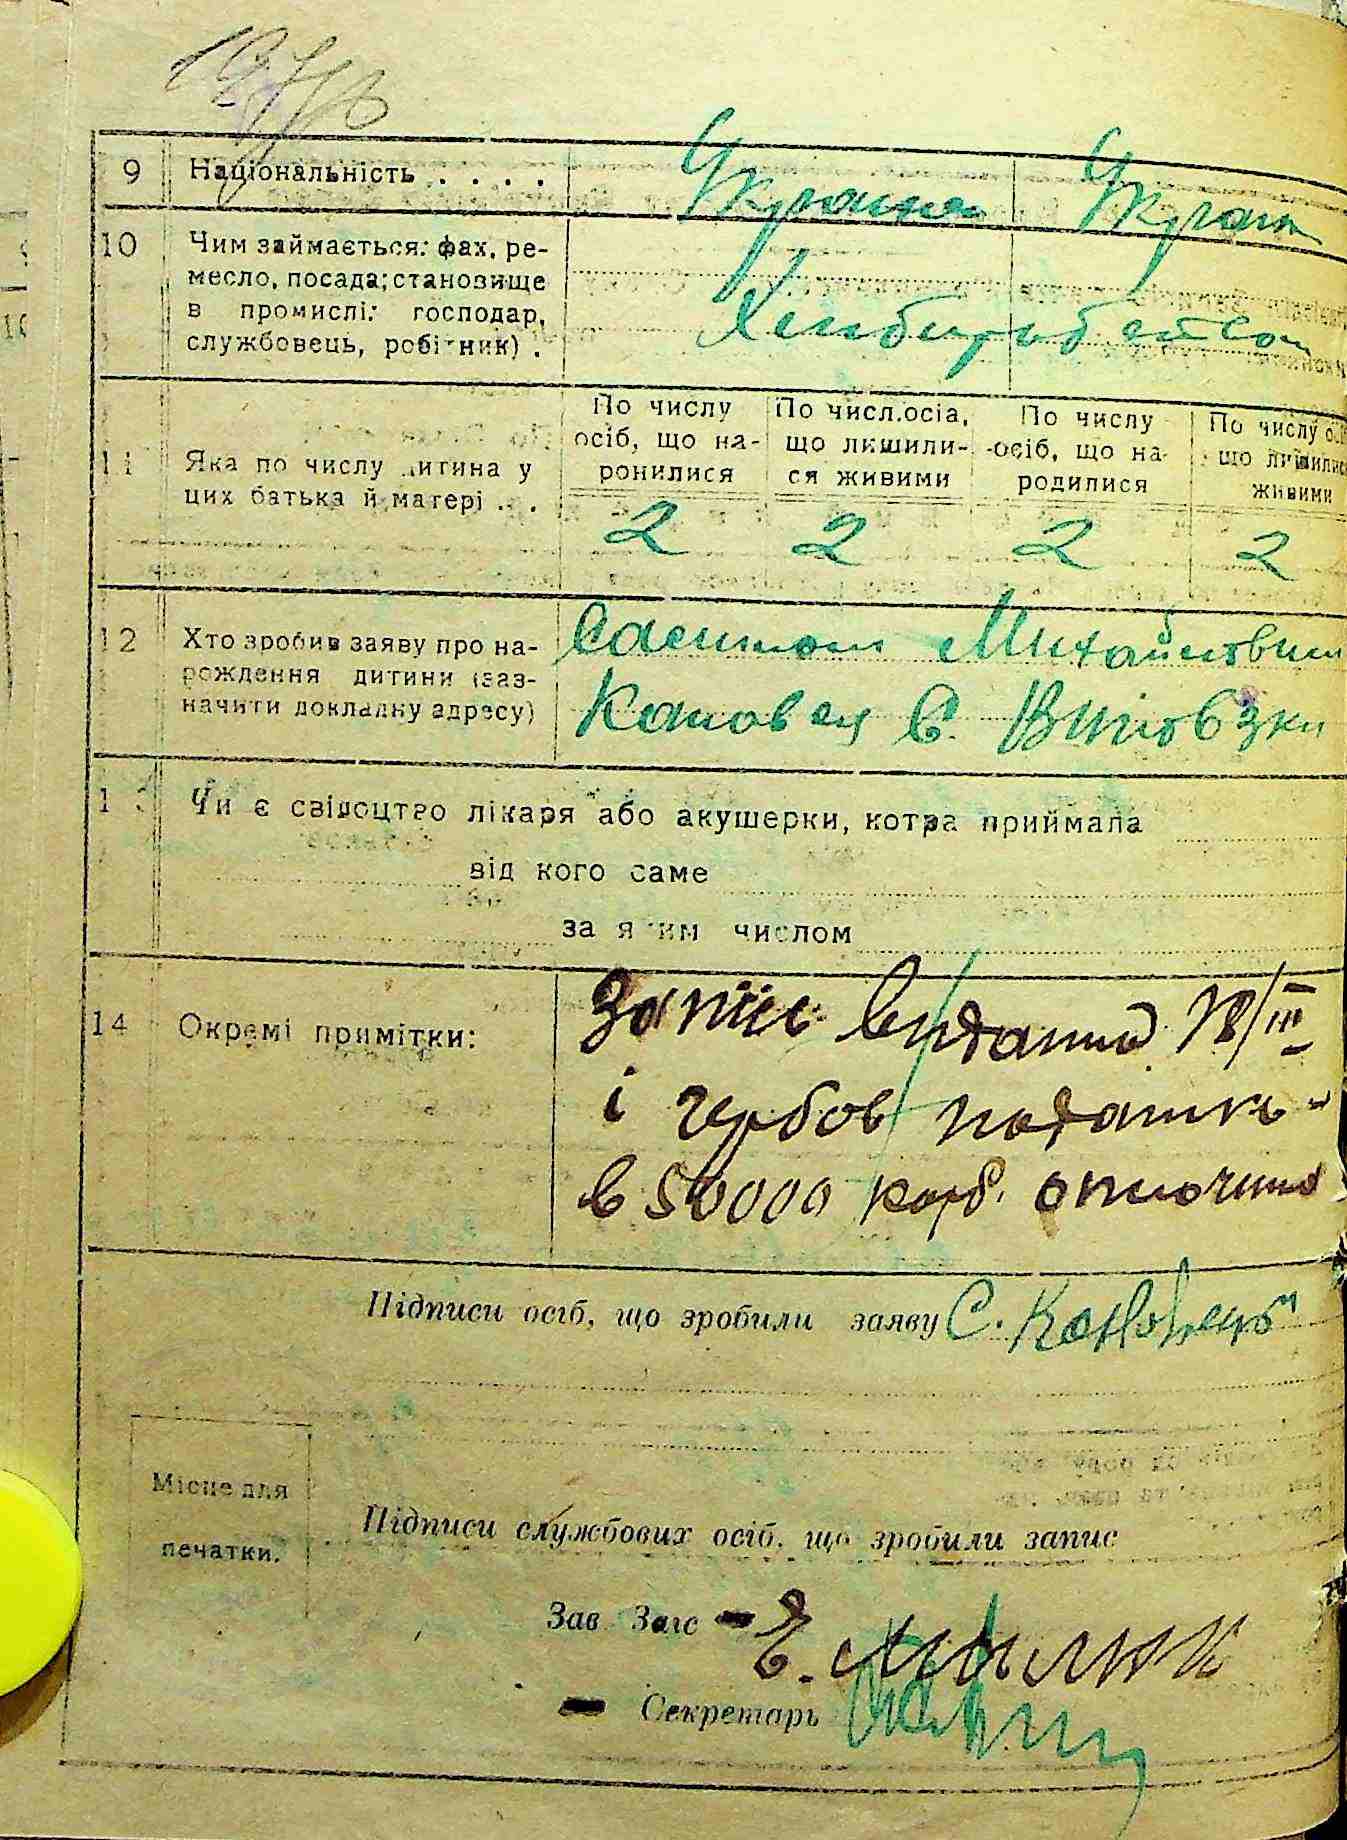 9 Національність . . . . Україна Україн
10 Чим займається: фах, ре-
месло, посада; становище
в промислі: господар,
службовець, робітник) .
11 Яка по числу дитина у
цих батька й матері . .
По числу осіб, що на-ронилися
По числ.осіа, що лишили-ся живими
По числу осіб, що на-родилися
По числу о що лишилис живими
2 2 2 2
12 Хто зробив заяву про на-
рождення дитини (заз-
начити докладну адресу)
С. Вигів
13 Чи є свідоцтво лікаря або акушерки, котра приймала
від кого саме
за яким числом
14 Окремі примітки:
Запис видання 18/III
і гербов податк
в 50000 карб. оплочено
Підписи осіб, що зробили заяву С. Коновець
Місце для
печатки.
Підписи службових осіб, що зробили запис
Зав Загс
Секретарь